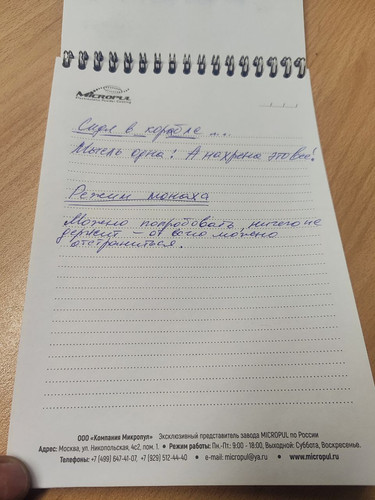 MICROPUL
Сидя в корабле ...
Мысль одна: А нахрена это все!
Режим монаха
Можно попробовать, ничего не
держит – от всего можно
отстраниться.
ООО «Компания Микропул» Эксклюзивный представитель завода MICROPUL по России
Адрес: Москва, ул. Никопольская, 4с2, пом. 1. • Режим работы: Пн.-Пт.: 9:00 - 18:00, Выходной: Суббота, Воскресенье.
Телефоны: +7 (499) 647-41-07, +7 (929) 512-44-40 • e-mail: micropul@ya.ru • www.micropul.ru